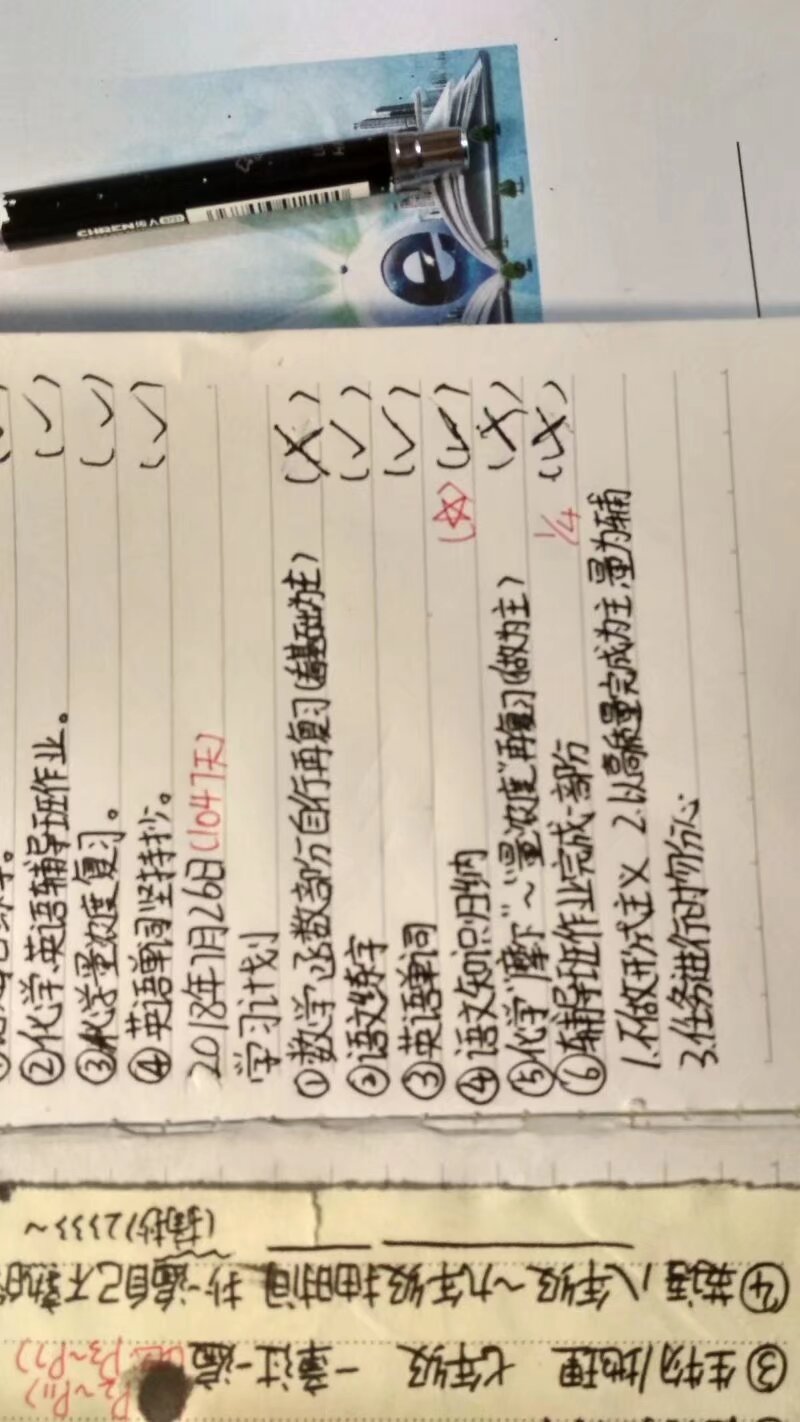 ②化学、英语辅导班作业。 (✓)
③化学量浓度复习。 (✓)
④英语单词坚持抄。 (✓)
2018年7月26日(1047天)
学习计划
①数学函数部分自行再复习(看基础为主) (×)
②语文练字 (✓)
③英语单词 (✓)
④语文知识归纳 (☆) (✓)
⑤化学"摩尔"~"量浓度"再复习(做为主) (×)
⑥辅导班作业完成一部分 1/4 (×)
1.不做形式主义 2.以高质量完成为主,量为辅
3.任务进行时勿分心
③生物/地理 七年级 一章过一遍
P3~P7)
P2~P11)
④英语八年级~九年级抽时间抄一遍自己不熟的